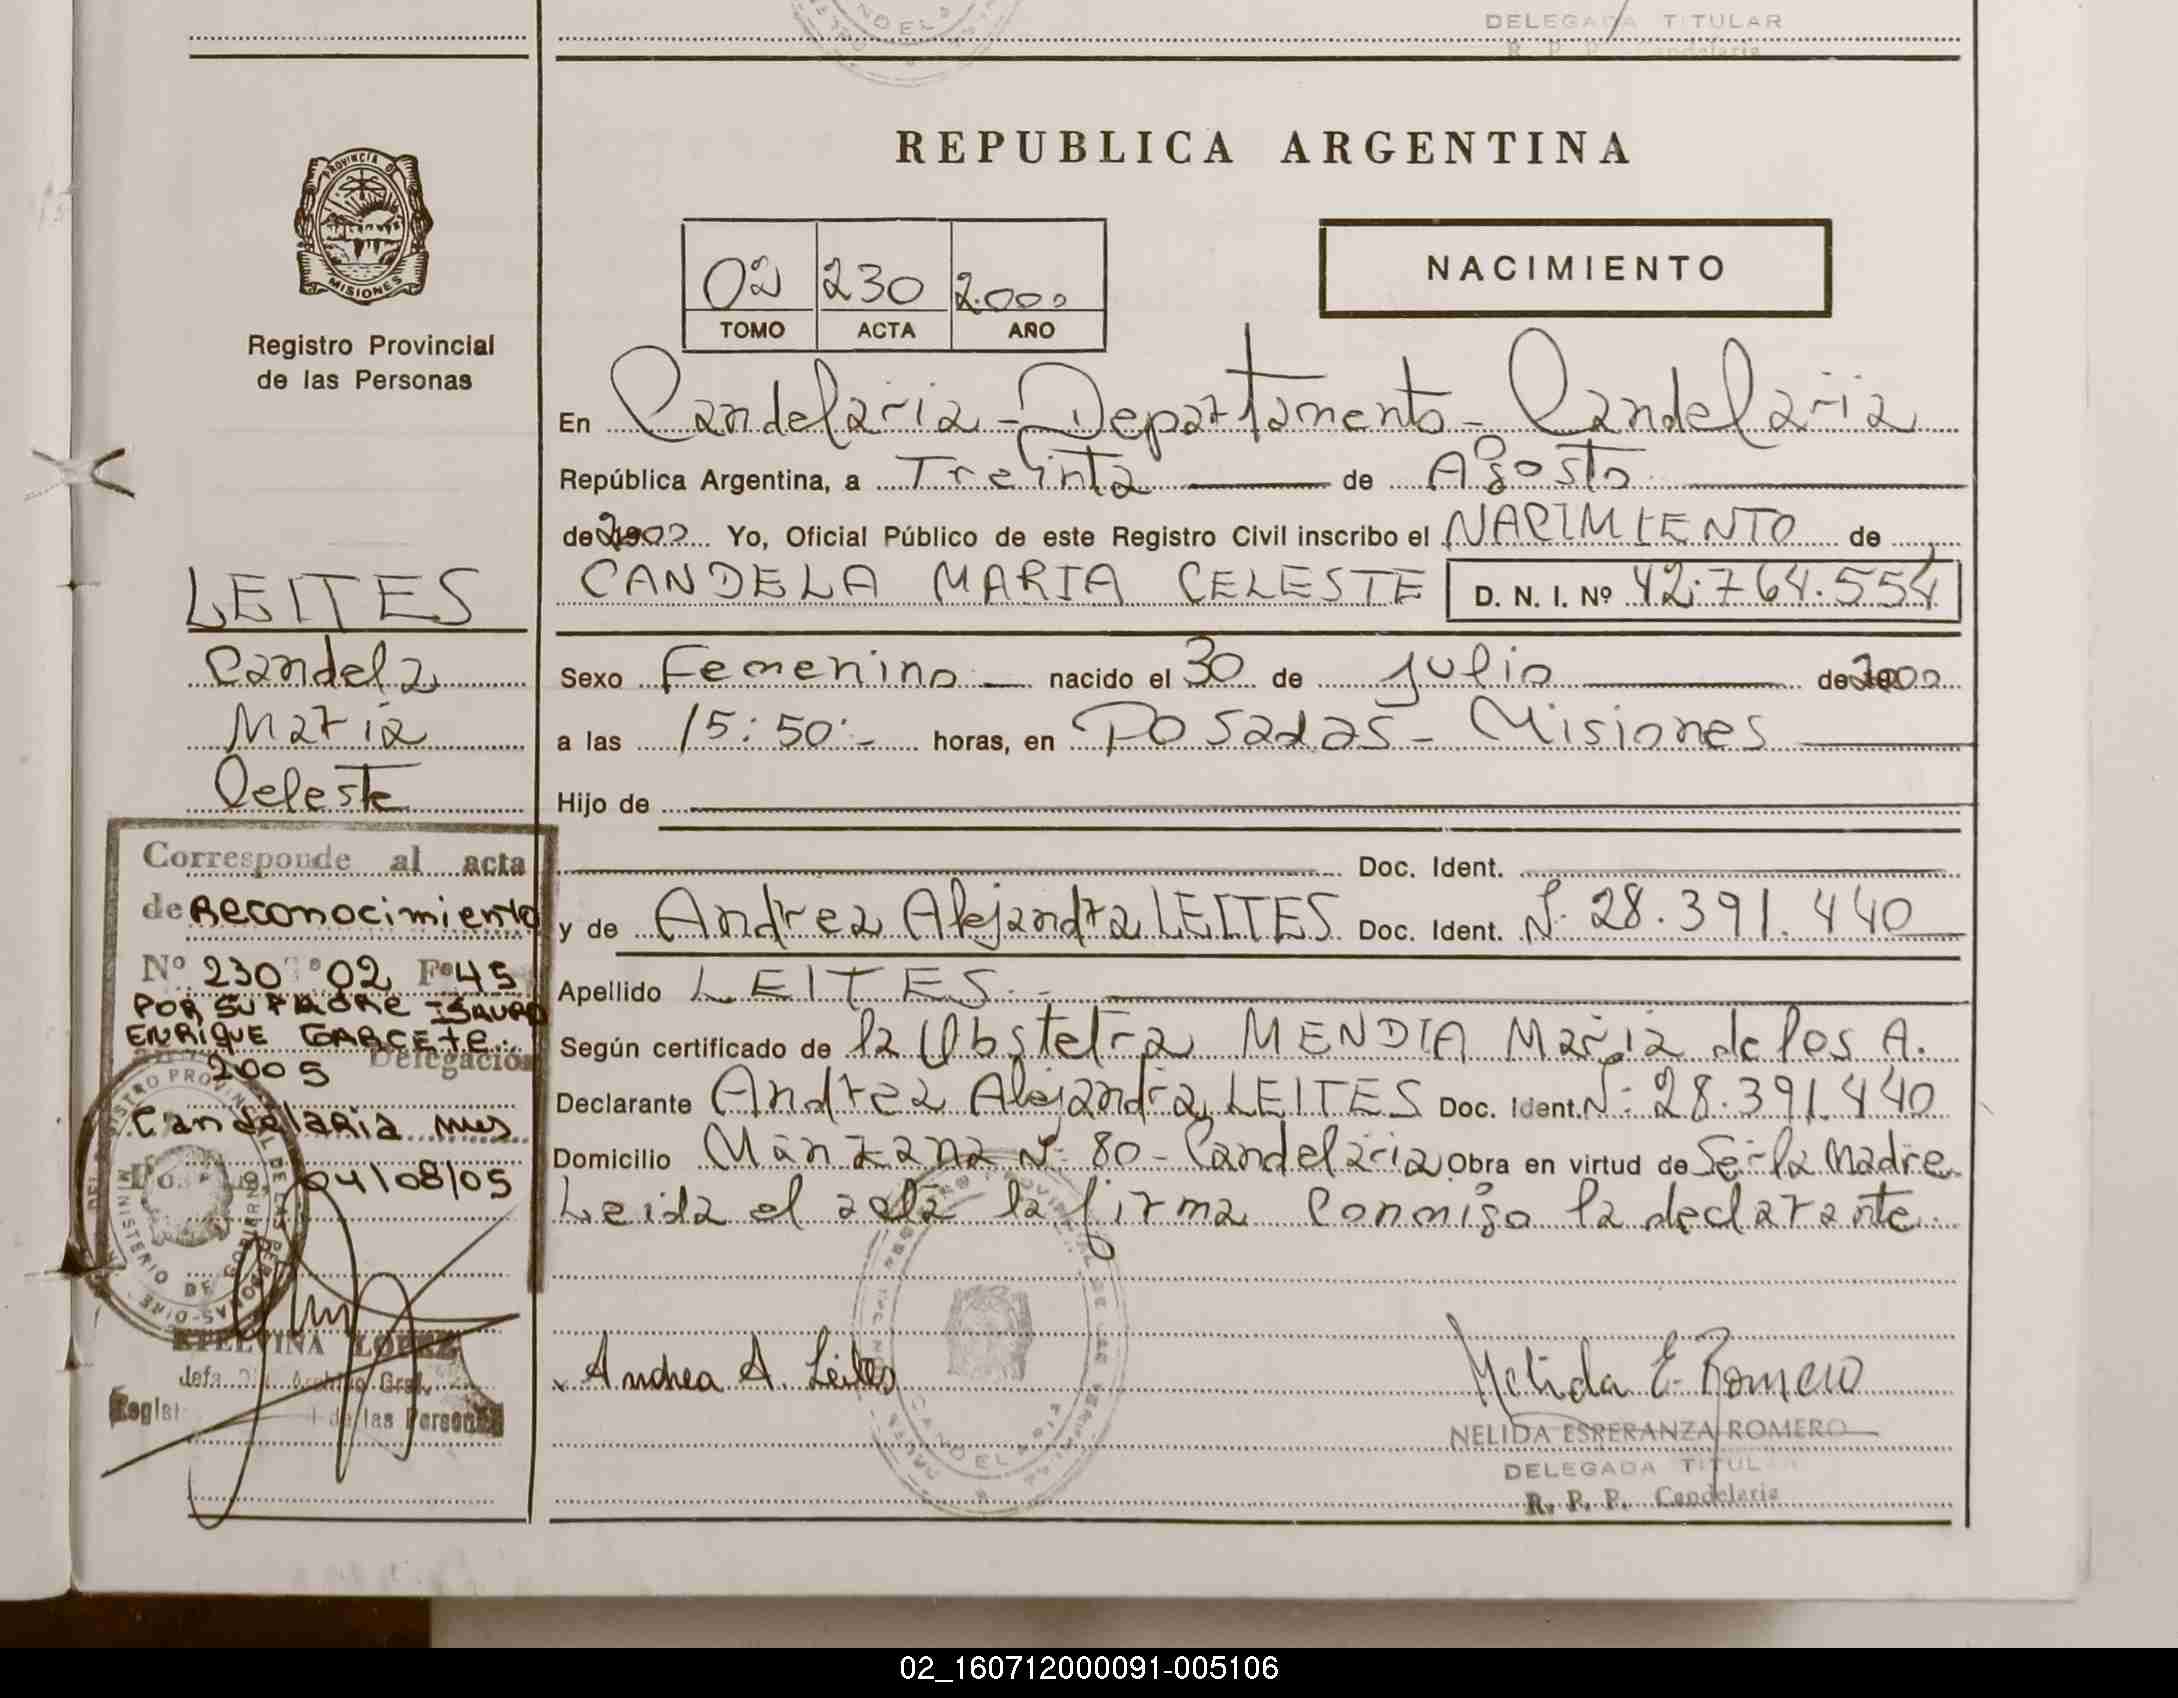 DELEGADA TITULAR
R. P. P. Candelaria
REPUBLICA ARGENTINA
PROVINCIA DE
MISIONES
Registro Provincial
de las Personas
02 230 2.000
TOMO ACTA AÑO
NACIMIENTO
En Candelaria - Departamento - Candelaria
República Argentina, a Treinta de Agosto
de 2000 Yo, Oficial Público de este Registro Civil inscribo el NACIMIENTO de
CANDELA MARIA CELESTE D. N. I. Nº 42.764.554
Sexo Femenino nacido el 30 de Julio de 2000
a las 15:50:- horas, en Posadas - Misiones
Hijo de
Doc. Ident.
y de Andrea Alejandra LEITES Doc. Ident. Nº 28.391.440
Apellido LEITES.-
Según certificado de la Obstetra MENDIA Maria de los A.
Declarante Andrea Alejandra LEITES Doc. Ident. Nº: 28.391.440
Domicilio Manzana Nº 80 - Candelaria Obra en virtud de Ser la Madre
Leida el acta la firma conmigo la declarante.
Andrea A. Leites
Nelida E. Romero
NELIDA ESPERANZA ROMERO
DELEGADA TITULAR
R. P. P. Candelaria
LEITES
Candela
Maria
Celeste
Corresponde al acta
de Reconocimiento
Nº 230 Tº 02 Fº 45
POR SU PADRE ISAURO
ENRIQUE GARCETE.
2005 Delegación
Candelaria Mnes
04/08/05
LOPEZ
Jefa Archivo Gral.
de las Personas
02_160712000091-005106